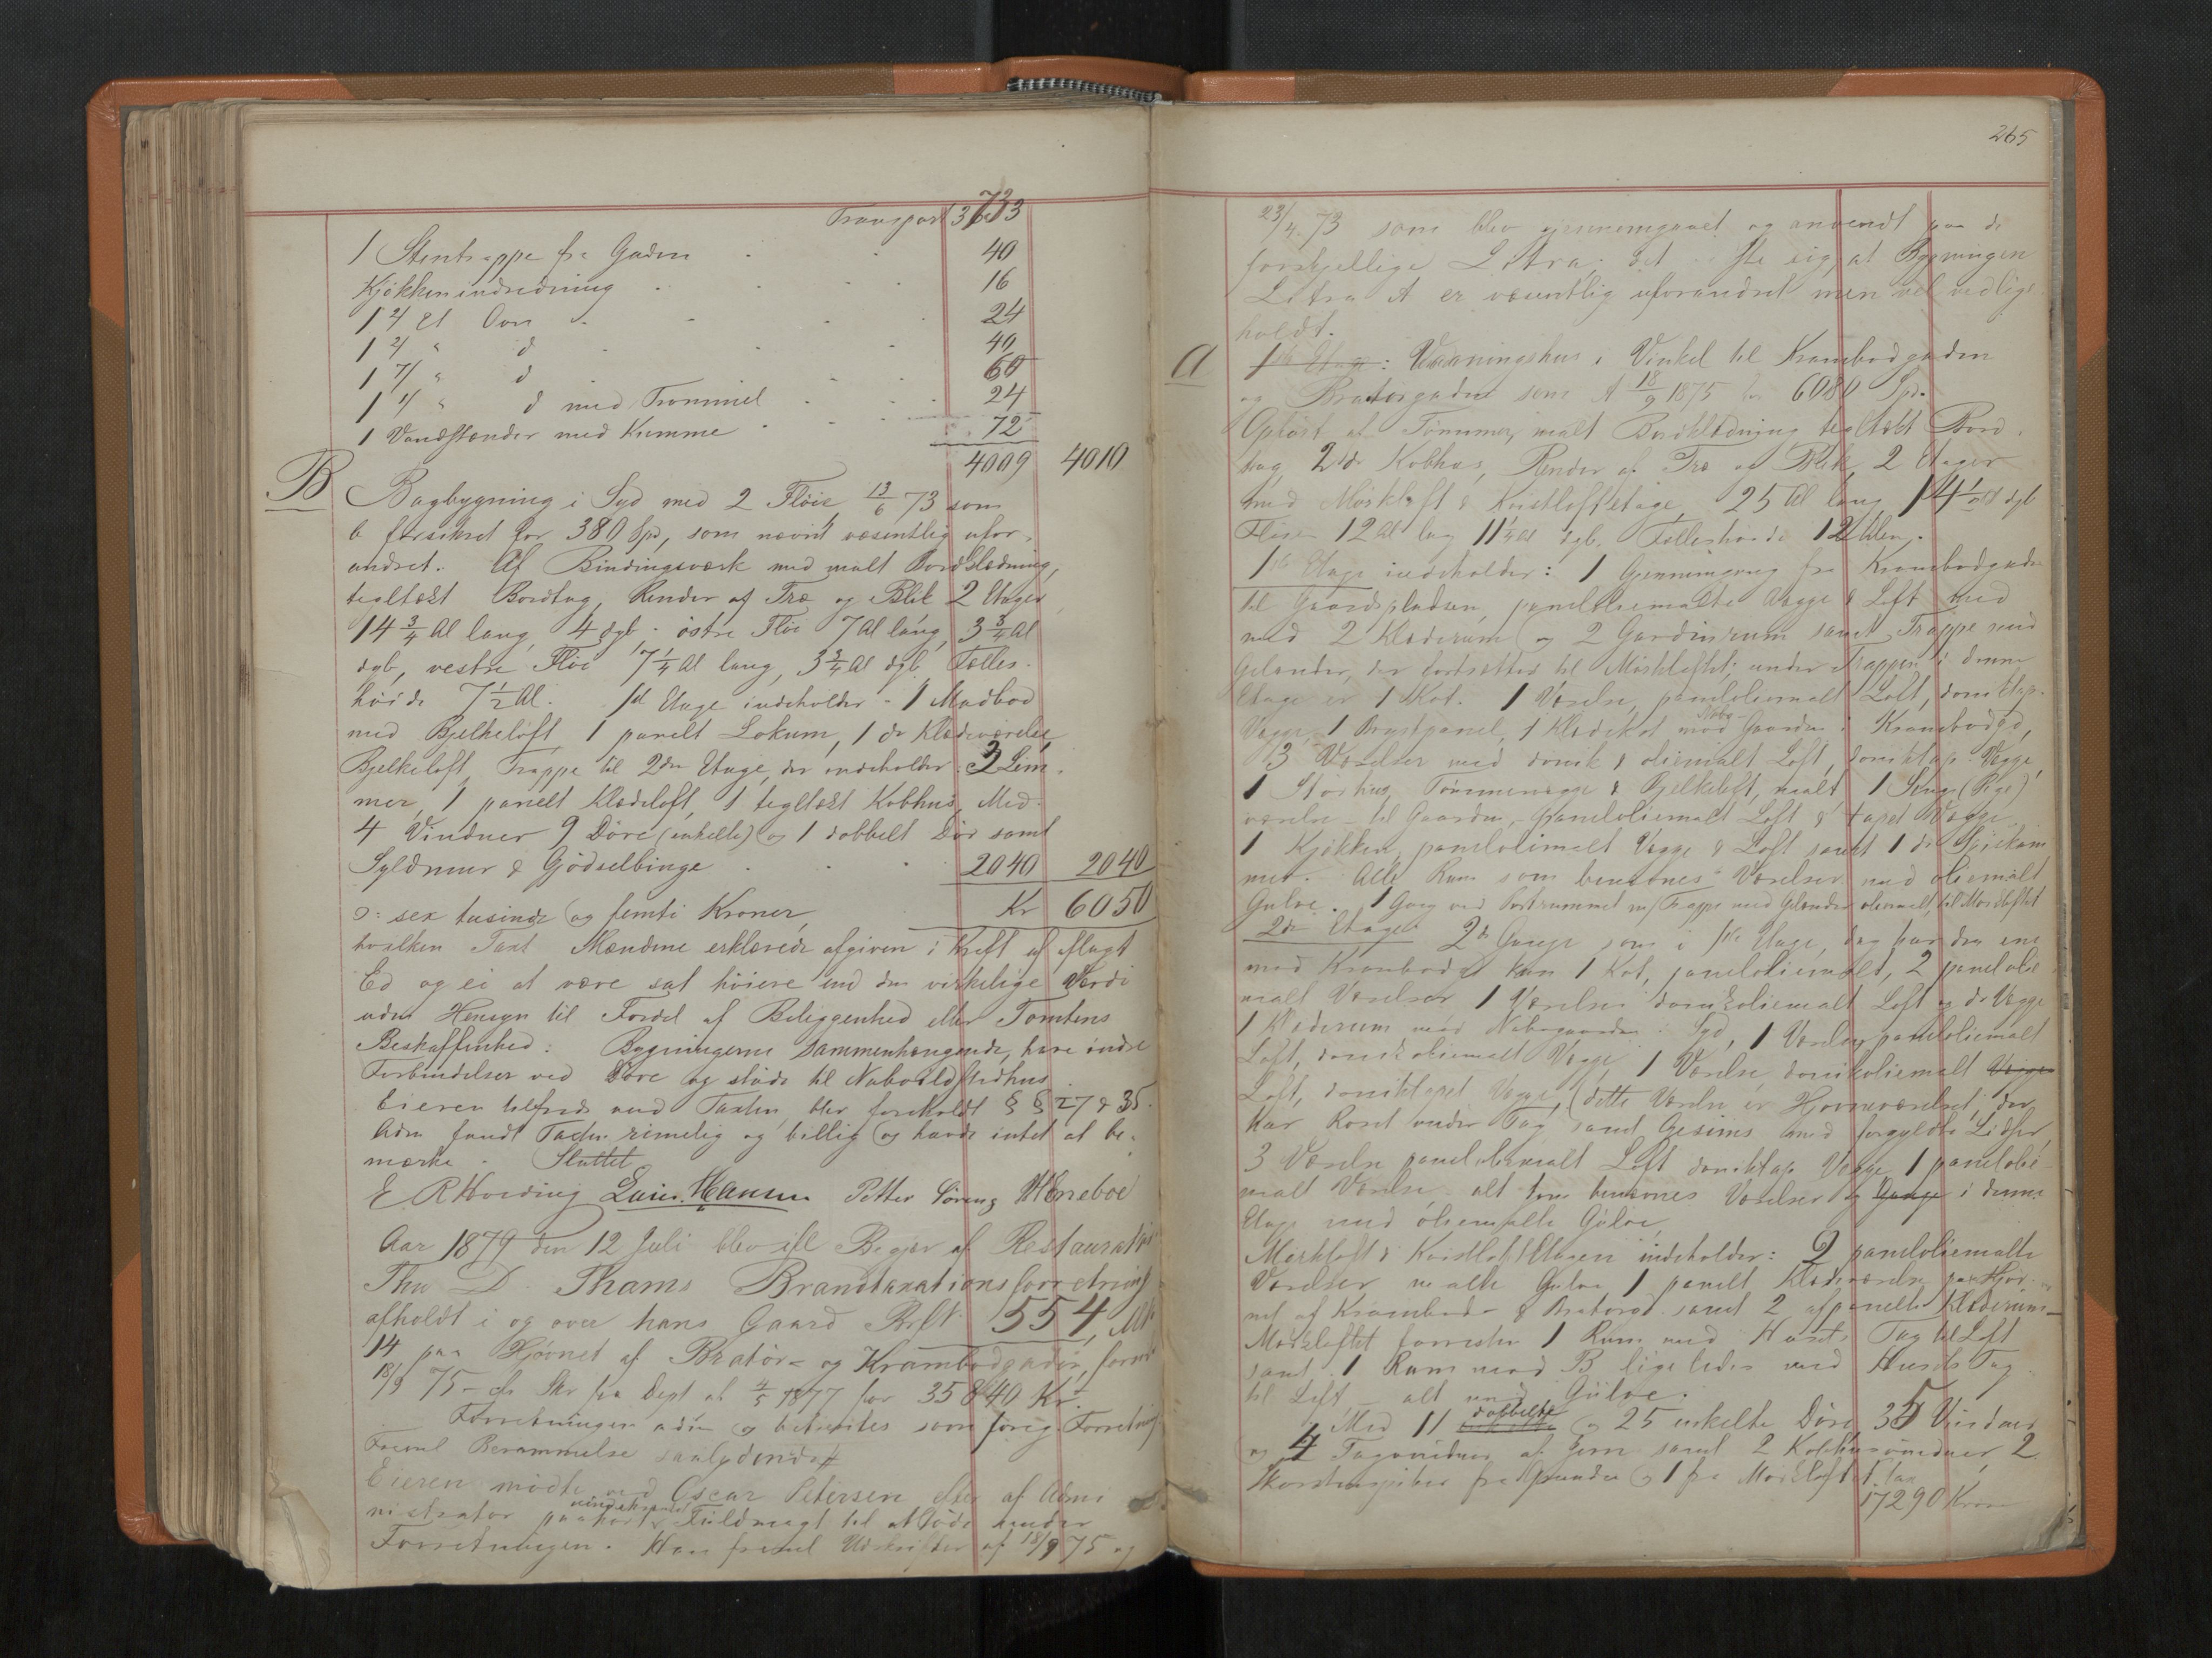 Transport 3733
1 Stentrappe fra Gaden 40
Kjøkkenindredning 16
1 2/ Et Ovn 24
1 2/ " d 40
1 " d 60
1 " d med Trommel 24
1 Vandstender med Kumme 72
4009 4010
B Bagbygning i Syd med 2 Fløie, 13/6 73 som
b forsikret for 380 Spd, som nævnt væsentlig ufor-
andret. Af Bindingsværk med malt Bordklædning,
tegltækt Bordtag, Render af Træ og Blik 2 Etager,
14 3/4 Al lang, 4 dyb. østre Fløi 7 Al lang, 3 3/4 Al
dyb, vestre Fløi 7 1/4 Al lang, 3 3/4 Al dyb, Fælles-
høide 7 1/2 Al. 1ste Etage indeholder - 1 Madbod
med Bjelkeloft, 1 panelt Lokum, 1 do Klædeværelse,
Bjelkeloft, Trappe til 2den Etage, der indeholder: 2 Lem-
mer, 1 panelt Klædeloft, 1 tegltækt Kobhus, Med
4 Vinduer 9 Døre (enkelte) og 1 dobbelt Dør samt
Syldmur & Gjødselbinge 2040 2040
Kr 6050
ɔ: sex tusinde og femti Kroner,
hvilken Taxt Mændene erklærede afgiven i Kraft af aflagt
Ed og ei at være sat høiere end den virkelige Værdi
uden Hensyn til Fordel af Beliggenhed eller Tomtens
Beskaffenhed: Bygningerne sammenhængende, have indre
Forbindelser ved Døre og støde til Naboildstedhus.
Eieren tilfreds med Taxten, blev foreholdt § § 27 & 35.
Adm fandt Taxten rimelig og billig og havde intet at be-
mærke. Sluttet
E R Hverding Laur. Hansen Petter Sørens Weneboe
Aar 1879 den 12 Juli blev ifl Begjær af Restauratør
Ths D. Thams Brandtaxationsforretning
afholdt i og over hans Gaard 554, Mt
14 paa Hjørnet af Bratør- og Krambodgaden,
18/9 75 - Skr fra Dept af 4/5 1877 for 35840 Kr.
Forretningen adm og betjentes som forrige Forretning
Freml Berammelse saalydende #
Eieren mødte ved Oscar Petersen efter af Admi
nistrator paahørt mundtlig Fuldmagt til at møde under
Forretningen. Han freml Udskrifter af 18/9 75 og
265
23/4 73 som blev gjennemgaaet og anvendt paa de
forskjellige Litra; det viste sig, at Bygningen
Litra A er væsentlig uforandret men vel vedlige-
holdt.
A 1ste Etage: Vaaningshus i Vinkel til Krambodgaden
og Bratørgaden som A 18/9 1875 for 6080 Spd.
Opført af Tømmer, malt Bordklædning tegltækt Bord-
tag, 2de Kobhus, Render af Træ og Blik, 2 Etager
med Mørkloft & Kvistloftetage, 25 Al lang, 14 1/2 Al dyb
Fløien 12 Al lang 11 1/4 Al dyb. Fælleshøide 12 Alen.
1ste Etage indeholder: 1 Gjennemgang fra Krambodgaden
til Gaardspladsen, paneloliemalte Vægge & Loft med
med 2 Klæderum og 2 Gardinrum samt Trappe med
Gelænder, der fortsættes til Mørkloftet; under Trappen i denne
Etage er 1 Kot. 1 Værelse, paneloliemalt Loft, donktap.
Vægge, 1 Brystpanel, 1 Klædekot mod Nabo-Gaarden i Krambodgd,
3 Værelser med donk & oliemalt Loft, donktap. Vægge,
1 Størhus, Tømmervægge & Bjelkeloft, malt, 1 Senge (Pige)
værelse - til Gaarden, paneloliemalt Loft & tapet Vægge,
1 Kjøkken, paneloliemalt Vægge & Loft samt 1 do Spiskam
mer. Alle Rum som benævnes Værelser med oliemalt
Gulve. 1 Gang ved Portrummet m/ Trappe med Gelænder oliemalt, til Mørkloftet
2den Etage: 2de Gange som i 1ste Etage, dog har den ene
mod Krambodgd kun 1 Kot, paneloliemalt, 2 panelolie
malt Værelser 1 Værelse donkoliemalt Loft og do Vægge
1 Klæderum mod Nabogaarden i Syd, 1 Værelse paneloliemalt
Loft, donkoliemalt Vægge, 1 Værelse, donkoliemalt Vægge
Loft, donktapet Vægge, (dette Værelse er Hjørneværelset, der
har Roset under Tag samt Gesims med forgyldte Lidser,
3 Værelse paneloliemalt Loft donktap Vægge 1 panelolie
malt Værelse. alt som benævnes Værelser og Gange i denne
Etage med oliemalte Gulve,
Mørkloft & Kvistloftetagen indeholder: 2 paneloliemalte
Værelser malte Gulve 1 panelt Klædeværelse paa Hjør-
net af Krambod- & Bratørgd. samt 2 afpanelte Klæderum
Mørkloftet forresten 1 Rum med Husets Tag til Loft
samt 1 Rum mod B ligeledes med Husets Tag
til Loft - alt med Gulve.
Med 11 dobbelte og 25 enkelte Døre 35 Vinduer
og 4 Tagvinduer af Jern samt 2 Kobhusvinduer, 2
Skorstenspiber fra Grunden og 1 fra Mørkloftet tax
17290 Kron